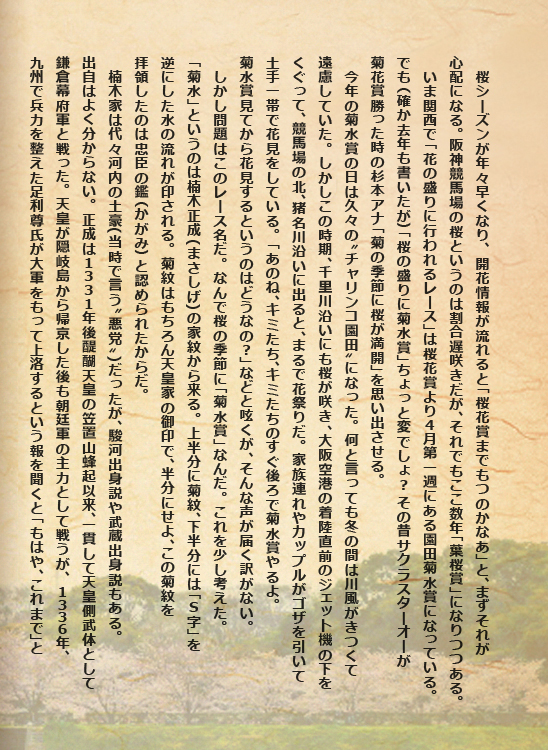 桜シーズンが年々早くなり、開花情報が流れると「桜花賞までもつのかなあ」と、まずそれが
心配になる。阪神競馬場の桜というのは割合遅咲きだが、それでもここ数年「葉桜賞」になりつつある。
いま関西で「花の盛りに行われるレース」は桜花賞より４月第一週にある園田菊水賞になっている。
でも(確か去年も書いたが)「桜の盛りに菊水賞」ちょっと変でしょ？その昔サクラスターオーが
菊花賞勝った時の杉本アナ「菊の季節に桜が満開」を思い出させる。
今年の菊水賞の日は久々の〝チャリンコ園田〟になった。何と言っても冬の間は川風がきつくて
遠慮していた。しかしこの時期、千里川沿いにも桜が咲き、大阪空港の着陸直前のジェット機の下を
くぐって、競馬場の北、猪名川沿いに出ると、まるで花祭りだ。家族連れやカップルがゴザを引いて
土手一帯で花見をしている。「あのね、キミたち、キミたちのすぐ後ろで菊水賞やるよ。
菊水賞見てから花見するというのはどうなの？」などと呟くが、そんな声が届く訳がない。
しかし問題はこのレース名だ。なんで桜の季節に「菊水賞」なんだ。これを少し考えた。
「菊水」というのは楠木正成(まさしげ)の家紋から来る。上半分に菊紋、下半分には「Ｓ字」を
逆にした水の流れが印される。菊紋はもちろん天皇家の御印で、半分にせよ、この菊紋を
拝領したのは忠臣の鑑(かがみ)と認められたからだ。
楠木家は代々河内の土豪(当時で言う〝悪党〟)だったが、駿河出身説や武蔵出身説もある。
出自はよく分からない。正成は１３３１年後醍醐天皇の笠置山蜂起以来、一貫して天皇側武体として
鎌倉幕府軍と戦った。天皇が隠岐島から帰京した後も朝廷軍の主力として戦うが、１３３６年、
九州で兵力を整えた足利尊氏が大軍をもって上洛するという報を聞くと「もはや、これまで」と